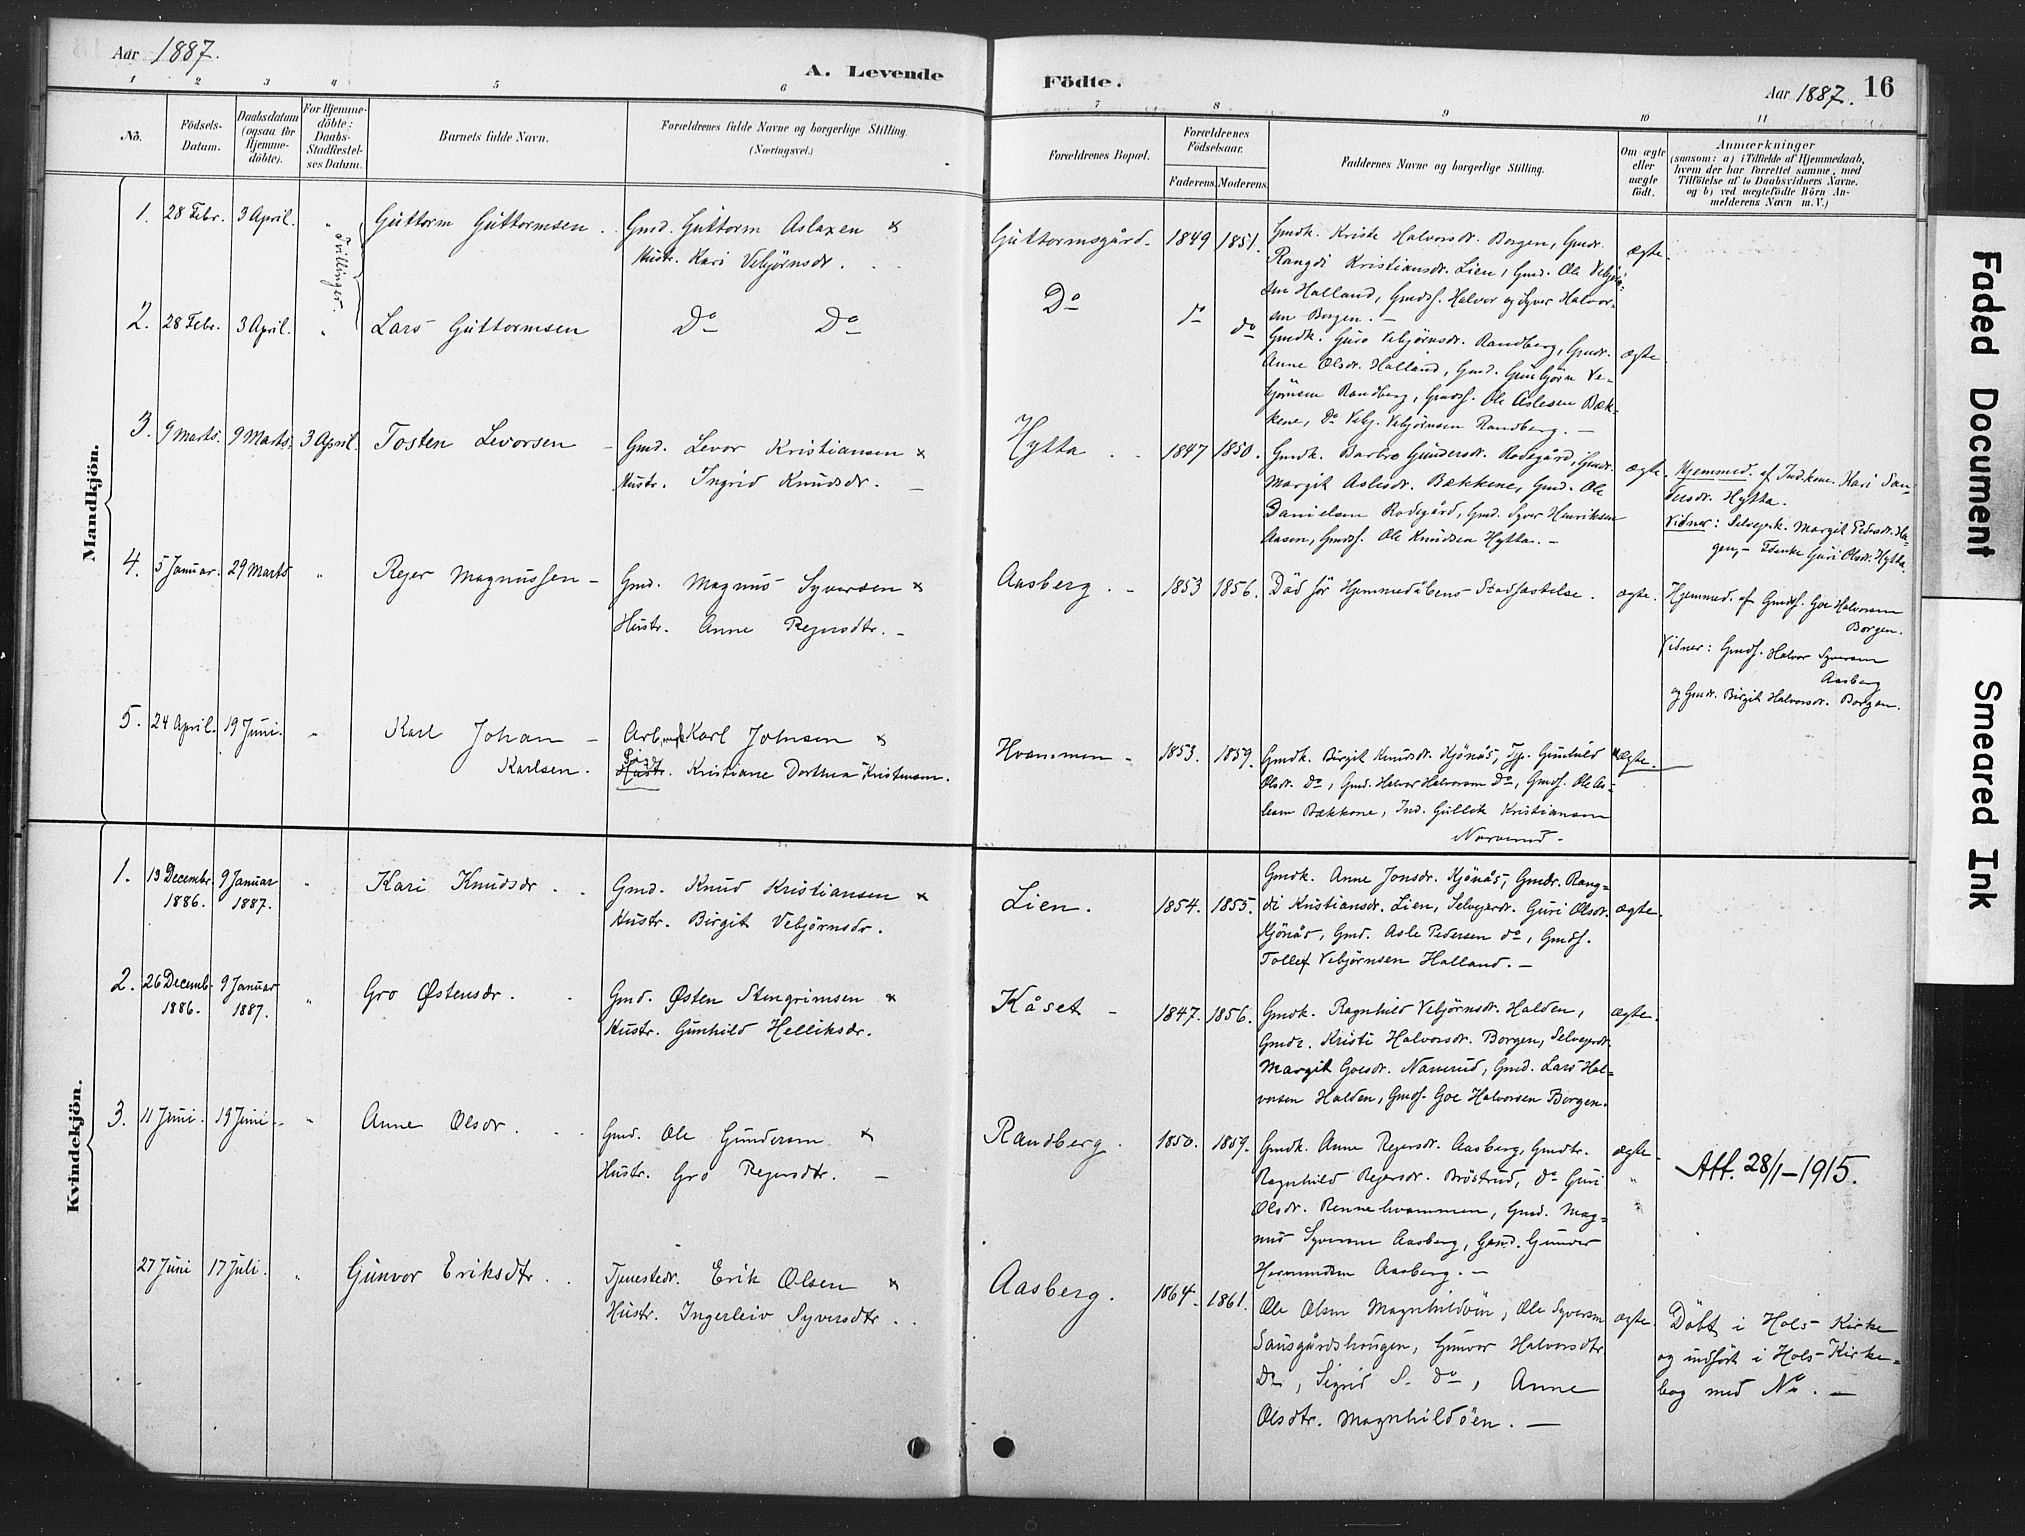 Aar 1887.
A. Levende
Födte.
Aar 1887.
16
1 2 3 4 5 6 7 8 9 10 11
No.
Födsels-Datum.
Daabsdatum (ogsaa for Hjemme-döbte).
For Hjemme-döbte: Daabs-Stadfæstel-ses Datum.
Barnets fulde Navn.
Forældrenes fulde Navne og borgerlige Stilling. (Næringsvei.)
Forældrenes Bopæl.
Forældrenes Födselsaar.
Faderens. Moderens.
Faddernes Navne og borgerlige Stilling.
Om ægte eller uægte födt.
Anmærkninger
(saasom: a) i Tilfælde af Hjemmedaab,
hvem der har forrettet samme, med
Tilföielse af to Daabsvidners Navne.
og b) ved uægtefödte Börn An-
melderens Navn m. V.)
Mandkjön.
1. 28 Febr. 3 April. " Guttorm Guttormsen. Gmd. Guttorm Aslaxen &
Hustr. Kari Vebjørnsdr.
Guttormsgård. 1849 1851. Gmdk. Kriste Halvorsdr. Borgen, Gmdr.
Rangdi Kristiansdr. Lien, Gmd. Ole Vebjörn-
sen Halland, Gmdf. Halvor og Syver Halvor-
sen Borgen. —
ægte.
Tvillinger.
2. 28 Febr. 3 April. " Lars Guttormsen Do Do
Do do do Gmdk. Guro Vebjørnsdr. Randberg, Gmdr.
Anne Olsdr. Halland, Gmd. Gunbjörn Ve-
björnsen Randberg, Gmdf. Ole Aslesen Bæk-
kene, Do Vebj. Vebjörnsen Randberg. —
ægte.
3. 9 Marts. 9 Marts. 3 April. Tosten Levorsen - Gmd. Levor Kristiansen &
Hustr. Ingrid Knudsdr. —
Hytta 1847 1850. Gmdk. Barbro Gundersdr. Rodegård, Gmdr.
Margit Aslesdr. Bækkene, Gmd. Ole
Danielsen Rodegård, Gmd. Syver Henriksen
Aasen, Gmdf. Ole Knudsen Hytta. —
ægte. Hjemmed. af Indkone. Kari San-
dersdr. Hytta.
Vidner: Selvejerk. Margit Pedersdr. Ha-
gen, - Fdenke Guri Olsdr. Hytta.
4. 5 Januar. 29 Marts " Rejer Magnussen - Gmd. Magnus Syversen &
Hustr. Anne Rejersdtr. -
Aasberg. - 1853 1856. Död för Hjemmedåbens Stadfæstelse. ægte. Hjemmed. af Gmdf. Goe Halvorsen
Borgen.
Vidner: Gmdf. Halvor Syversen
Aasberg
og Gmdr. Birgit Halvorsdr. Borgen.
5. 24 April. 19 Juni. " Karl Johan - Arb. Karl Johnsen &
Karlsen. Pige Hustr. Kristiane Dorthea Kristensen.
Hvammen - 1853. 1859. Gmdk. Birgit Knudsdr. Kjönås, Tjp. Gunhild
Olsdr. Do, Gmd. Halvor Halvorsen Do, Gmdf. Ole As-
lesen Bækkene, Ind. Gullek Kristiansen
Narverud -
uægte.
Kvindekjön.
1. 13 Decembr. 1886. 9 Januar 1887. " Kari Knudsdr. Gmd. Knud Kristiansen &
Hustr. Birgit Vebjørnsdr.
Lien. 1854. 1855. Gmdk. Anne Jonsdr. Kjönås, Gmdr. Rang-
di Kristiansdr. Lien, Selvejerdr. Guri Olsdr.
Kjönås, Gmd. Asle Pedersen do, Gmdf.
Tollef Vebjörnsen Halland. —
ægte.
2. 26 Decemb. 1886. 9 Januar 1887. " Gro Østensdr. Gmd. Østen Stengrimsen &
Hustr. Gunhild Helliksdr.
Kåset - 1847. 1856. Gmdk. Ragnhild Vebjörnsdr. Halden,
Gmdr. Kristi Halvorsdr. Borgen, Selvejerdr.
Margit Goesdr. Narverud, Gmd. Lars Hal-
vorsen Halden, Gmdf. Goe Halvorsen Borgen.
ægte.
3. 11 Juni. 19 Juni. " Anne Olsdr. Gmd. Ole Gundersen &
Hustr. Gro Rejersdtr. —
Randberg. 1850. 1859. Gmdk. Anne Rejersdr. Aasberg, Gmdtr.
Ragnhild Rejersdr. Bröstrud, Do Guri
Olsdr. Rennehvammen, Gmd. Mag-
nus Syversen Aasberg, Gmd. Gunder
Hermundsen Aasberg. —
ægte. Att. 28/1-1915.
27 Juni 17 Juli. " Gunvor Eriksdtr. Tjenestedr. Erik Olsen &
Hustr. Ingerleiv Syversdtr.
Aasberg. 1864. 1861. Ole Olsen Magnhildöen, Ole Syversen
Sausgårdshaugen, Gunvor Halvorsdtr
Do, Sigrid S. Do, Anne
Olsdtr. Magnhildöen. —
ægte. Döbt i Hols Kirke
og indfört i Hols Kirke-
bog med No. —
Faded Document
Smeared Ink